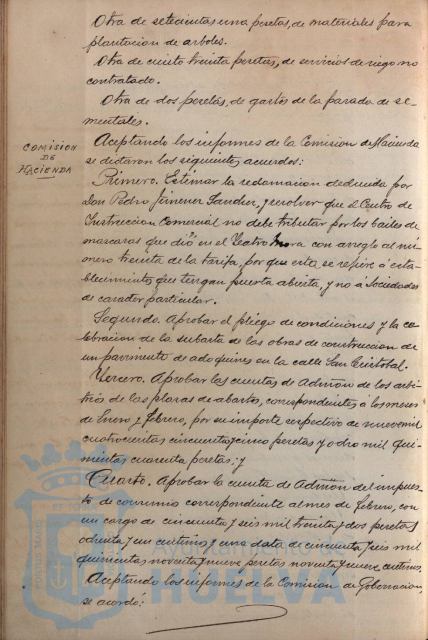 Otra de setecientas una pesetas, de materiales para
plantacion de arboles.
Otra de ciento treinta pesetas, de servicios de riego no
contratado.
Otra de dos pesetas, de gastos de la parada de se-
mentales.
COMISION
DE
HACIENDA
Aceptando los informes de la Comision de Hacienda
se dictaron los siguientes acuerdos:
Primero. Estimar la reclamacion deducida por
Don Pedro Jimenez Sanchez, y resolver que el Centro de
Instruccion Comercial no debe tributar por los bailes de
mascaras que dió en el Teatro Mora con arreglo al nú-
mero treinta de la tarifa, por que este se refiere á esta-
blecimientos que tengan puerta abierta, y no á Sociedades
de caracter particular.
Segundo. Aprobar el pliego de condiciones y la ce-
lebracion de la subasta de las obras de construccion de
un pavimento de adoquines en la calle San Cristobal.
Tercero. Aprobar las cuentas de Admon de los arbi-
trios de las plazas de abastos, correspondientes á los meses
de Enero y Febrero, por su importe respectivo de nueve mil
cuatrocientas cincuenta y cinco pesetas y ocho mil qui-
nientas cuarenta pesetas; y
Cuarto. Aprobar la cuenta de Admon del impues-
to de consumos correspondiente al mes de Febrero, con
un cargo de cincuenta y seis mil treinta y dos pesetas
ochenta y un centimos y una data de cincuenta y seis mil
quinientas noventa y nueve pesetas noventa y nueve centimos.
Aceptando los informes de la Comision de Gobernacion,
se acordó:
Ayuntamiento de
HUELVA